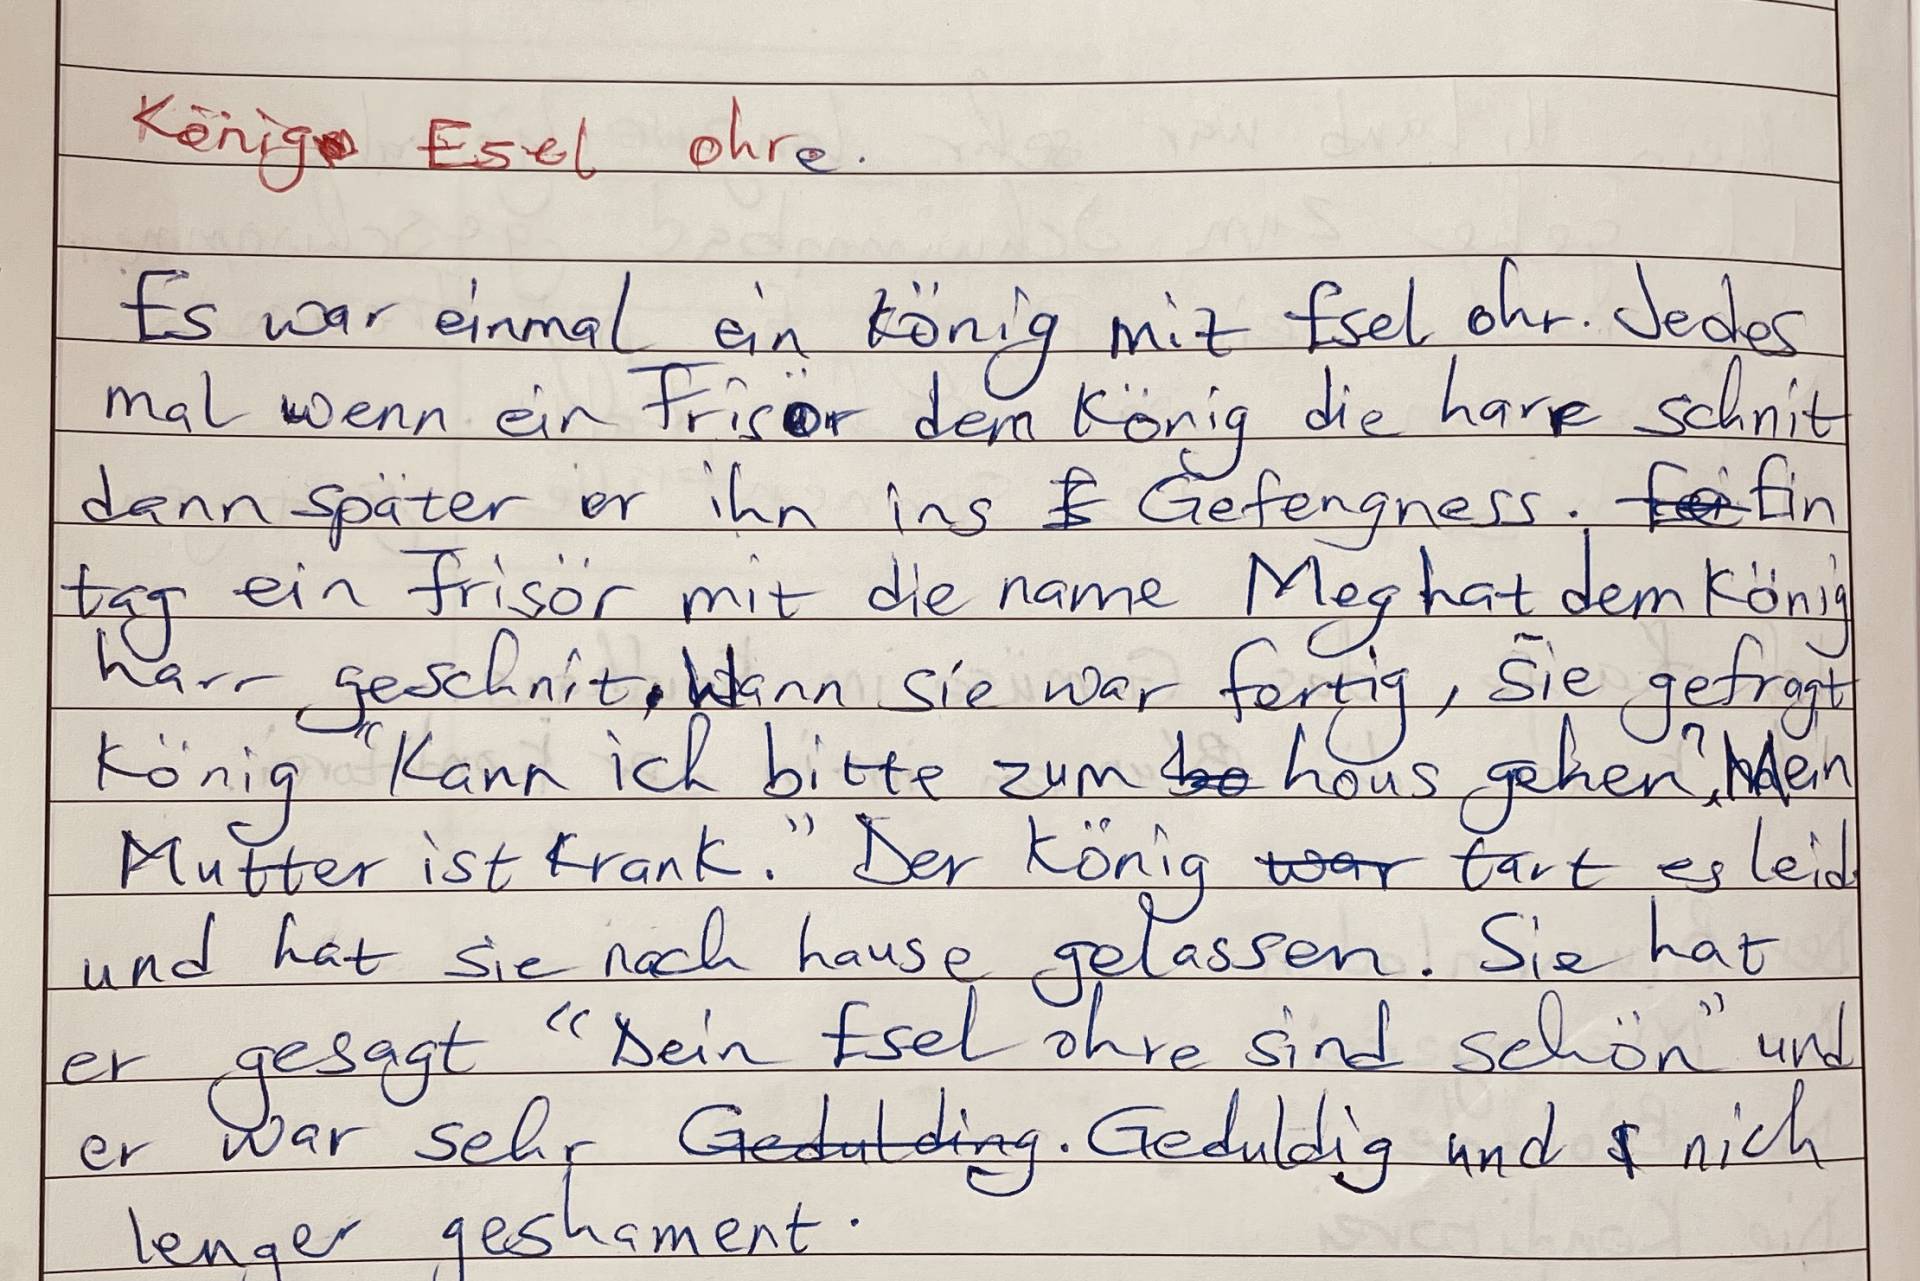 König Esel ohre.
Es war einmal ein König mit Esel ohr. Jedes
mal wenn ein Frisör dem König die hare schnit
dann später er ihn ins Gefengness. Ein
tag ein frisör mit die name Meg hat dem König
harr geschnit. Wann sie war fertig, Sie gefragt
König "Kann ich bitte zum hous gehen? Mein
Mutter ist Krank." Der König tart es leid
und hat sie nach hause gelassen. Sie hat
er gesagt "Dein Esel ohre sind schön" und
er war sehr Geduldig und nich
lenger geshament.